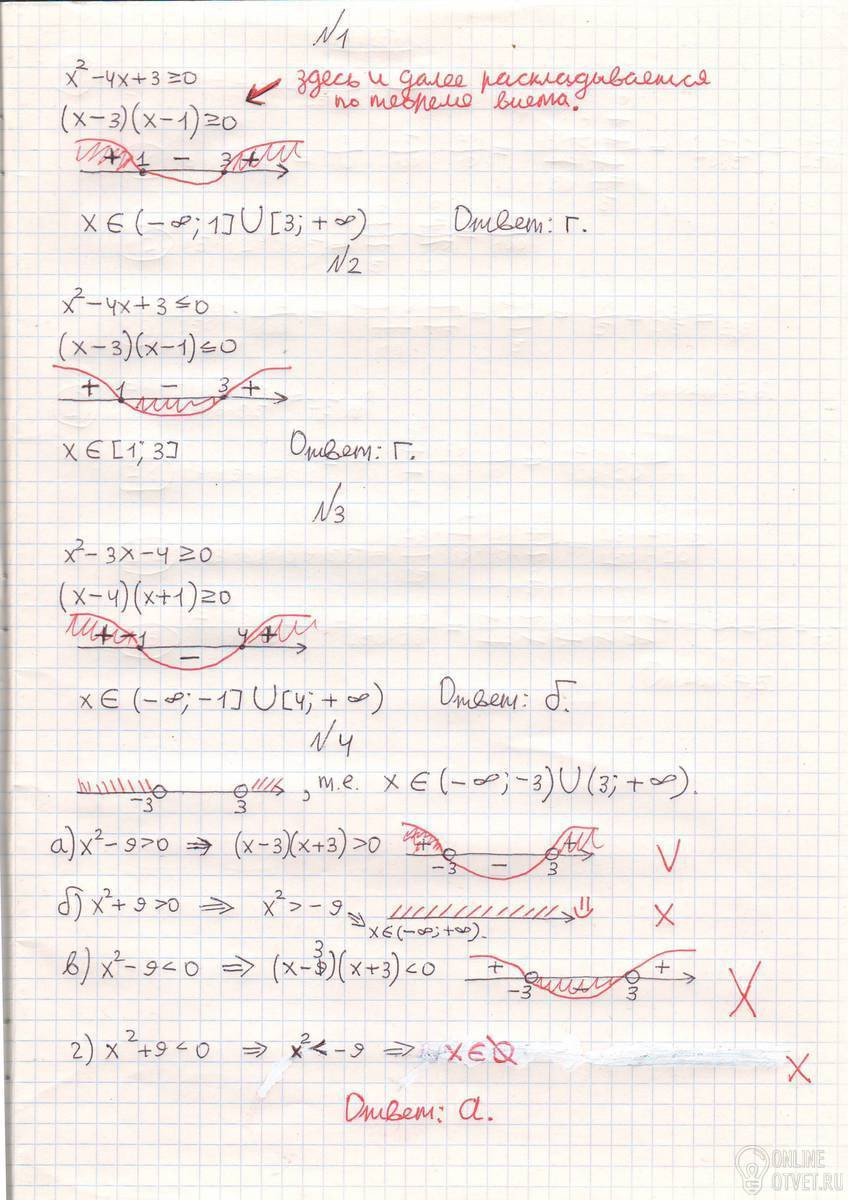 №1
x² - 4x + 3 ≥ 0
здесь и далее раскладывается
по теореме виета.
(x-3)(x-1) ≥ 0
+ 1 - 3 +
x ∈ (-∞; 1] ∪ [3; +∞) Ответ: г.
№2
x² - 4x + 3 ≤ 0
(x-3)(x-1) ≤ 0
+ 1 - 3 +
x ∈ [1; 3] Ответ: г.
№3
x² - 3x - 4 ≥ 0
(x-4)(x+1) ≥ 0
+ -1 - 4 +
x ∈ (-∞; -1] ∪ [4; +∞) Ответ: б.
№4
-3 3 , т.е. x ∈ (-∞; -3) ∪ (3; +∞).
а) x² - 9 > 0 ⇒ (x-3)(x+3) > 0 + -3 - 3 + V
б) x² + 9 > 0 ⇒ x² > -9 ⇒ x ∈ (-∞; +∞). X
в) x² - 9 < 0 ⇒ (x-3)(x+3) < 0 + -3 - 3 + X
г) x² + 9 < 0 ⇒ x² < -9 ⇒ x ∈ Ø X
Ответ: а.
ONLINE
OTVET.RU